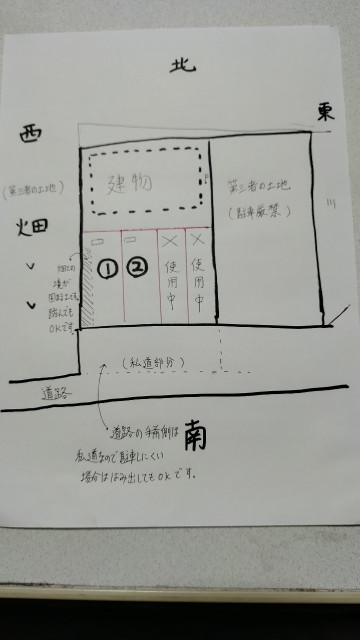 北
東
西
(第三者の土地)
畑
建物
第三者の土地
(駐車厳禁)
川
畑との
境が
踏んでも
OKです。
①
②
使用中
使用中
(私道部分)
道路
道路の手前側は
私道なので駐車しにくい
場合ははみ出してもOKです。
南